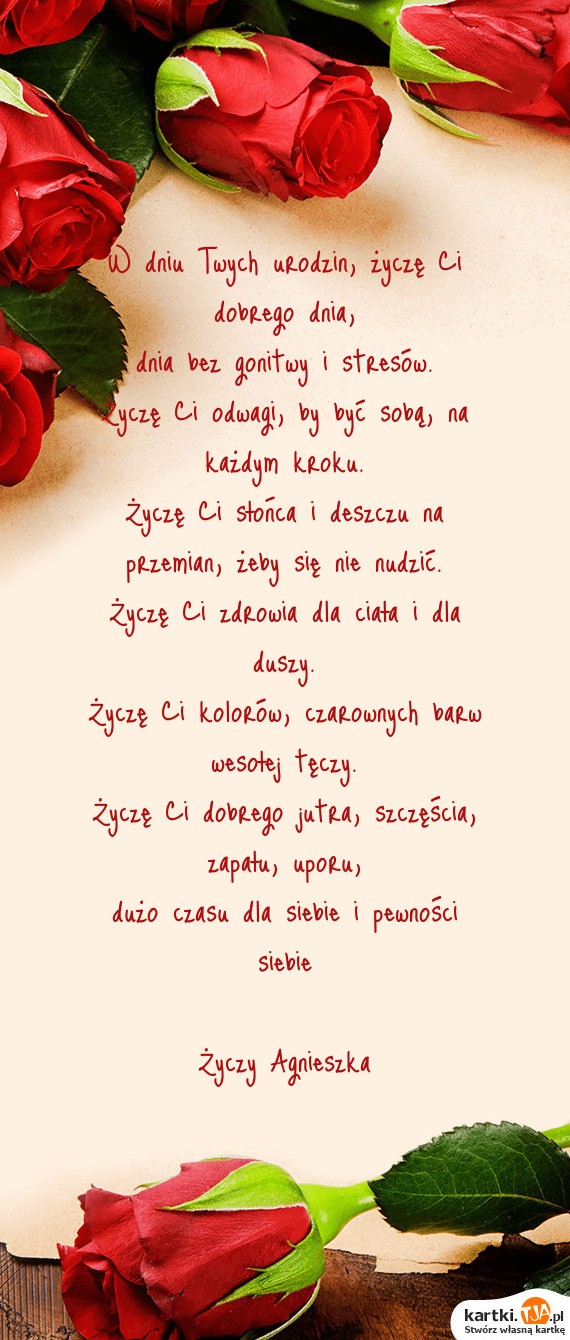 W dniu Twych urodzin, życzę Ci
dobrego dnia,
dnia bez gonitwy i stresów.
Życzę Ci odwagi, by być sobą, na
każdym kroku.
Życzę Ci słońca i deszczu na
przemian, żeby się nie nudzić.
Życzę Ci zdrowia dla ciała i dla
duszy.
Życzę Ci kolorów, czarownych barw
wesołej tęczy.
Życzę Ci dobrego jutra, szczęścia,
zapału, uporu,
dużo czasu dla siebie i pewności
siebie
Życzy Agnieszka
kartki.TJA.pl
Stwórz własną kartkę